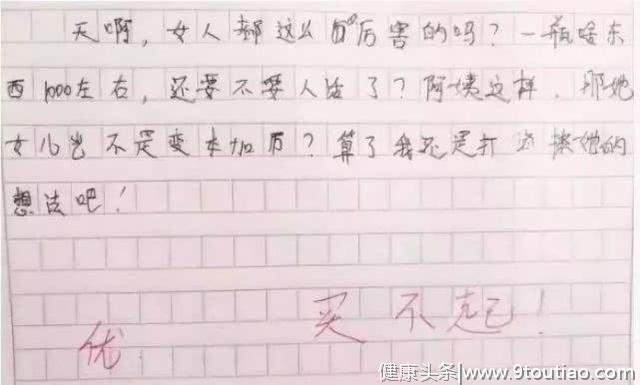 天啊，女人都这么厉害的吗？一瓶啥东
西1000左右，还要不要人活了？阿姨这样，那她
女儿岂不是变本加厉？算了我还是打消撩她的
想法吧！
买不起！
优
健康头条|www.9toutiao.com